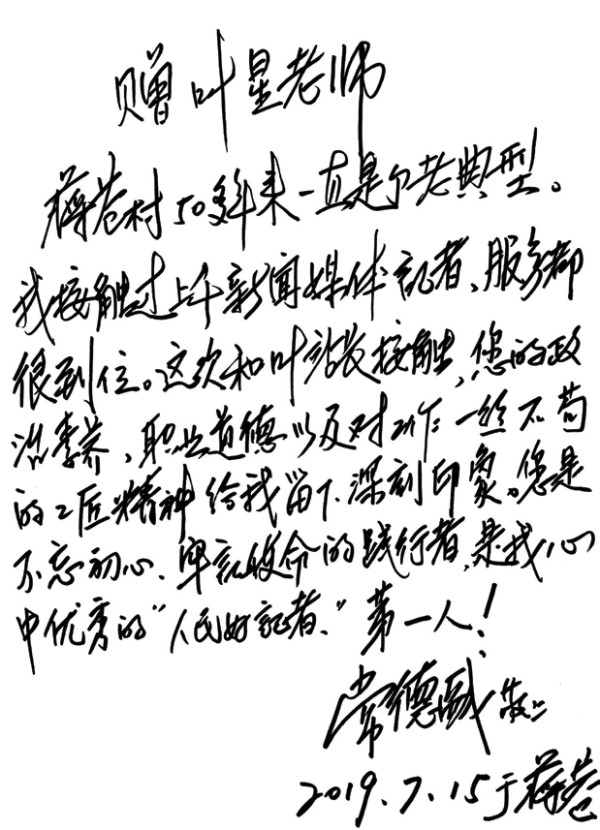 赠叶星老师
蒋巷村50多年来一直是个老典型。
我接触过上千新闻媒体记者、服务都
很到位。这次和叶站长接触,您的政
治素养,职业道德以及对工作一丝不苟
的工匠精神给我留下深刻印象。您是
不忘初心、牢记使命的践行者,是我心
中优秀的“人民好记者。”第一人!
常德盛
2019.7.15于蒋巷